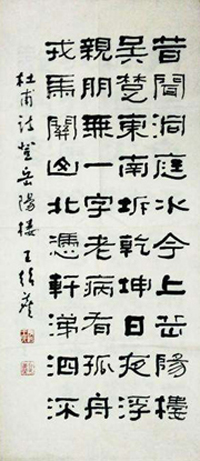 昔聞洞庭水今上岳陽樓
吳楚東南坼乾坤日夜浮
親朋無一字老病有孤舟
戎馬關山北憑軒涕泗流
杜甫詩登岳陽樓 王